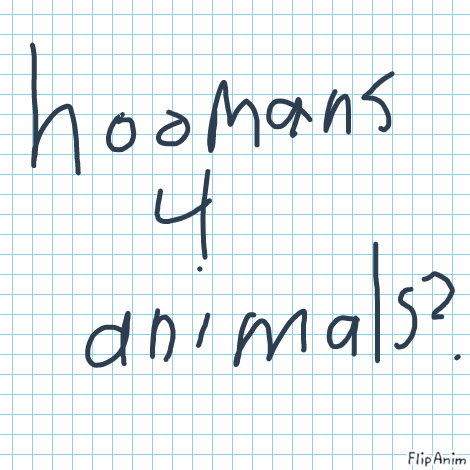 hoomans
4
animals?
FlipAnim